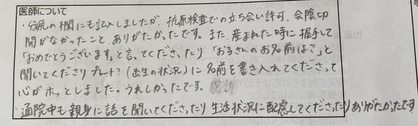 医師について
・分娩の欄にも記入しましたが、抗原検査での立ち会い許可、会陰切
開がなかったこと、ありがたかったです。また、産まれた時に握手して
「おめでとうございます」と言ってくださったり「お子さんのお名前は？」と
聞いてくださりプレート？(出生の状況)に名前を書き入れてくださって
心がホッとしました。うれしかったです。
通院中も親身に話を聞いてくださったり生活状況に配慮してくださったりありがたかったです